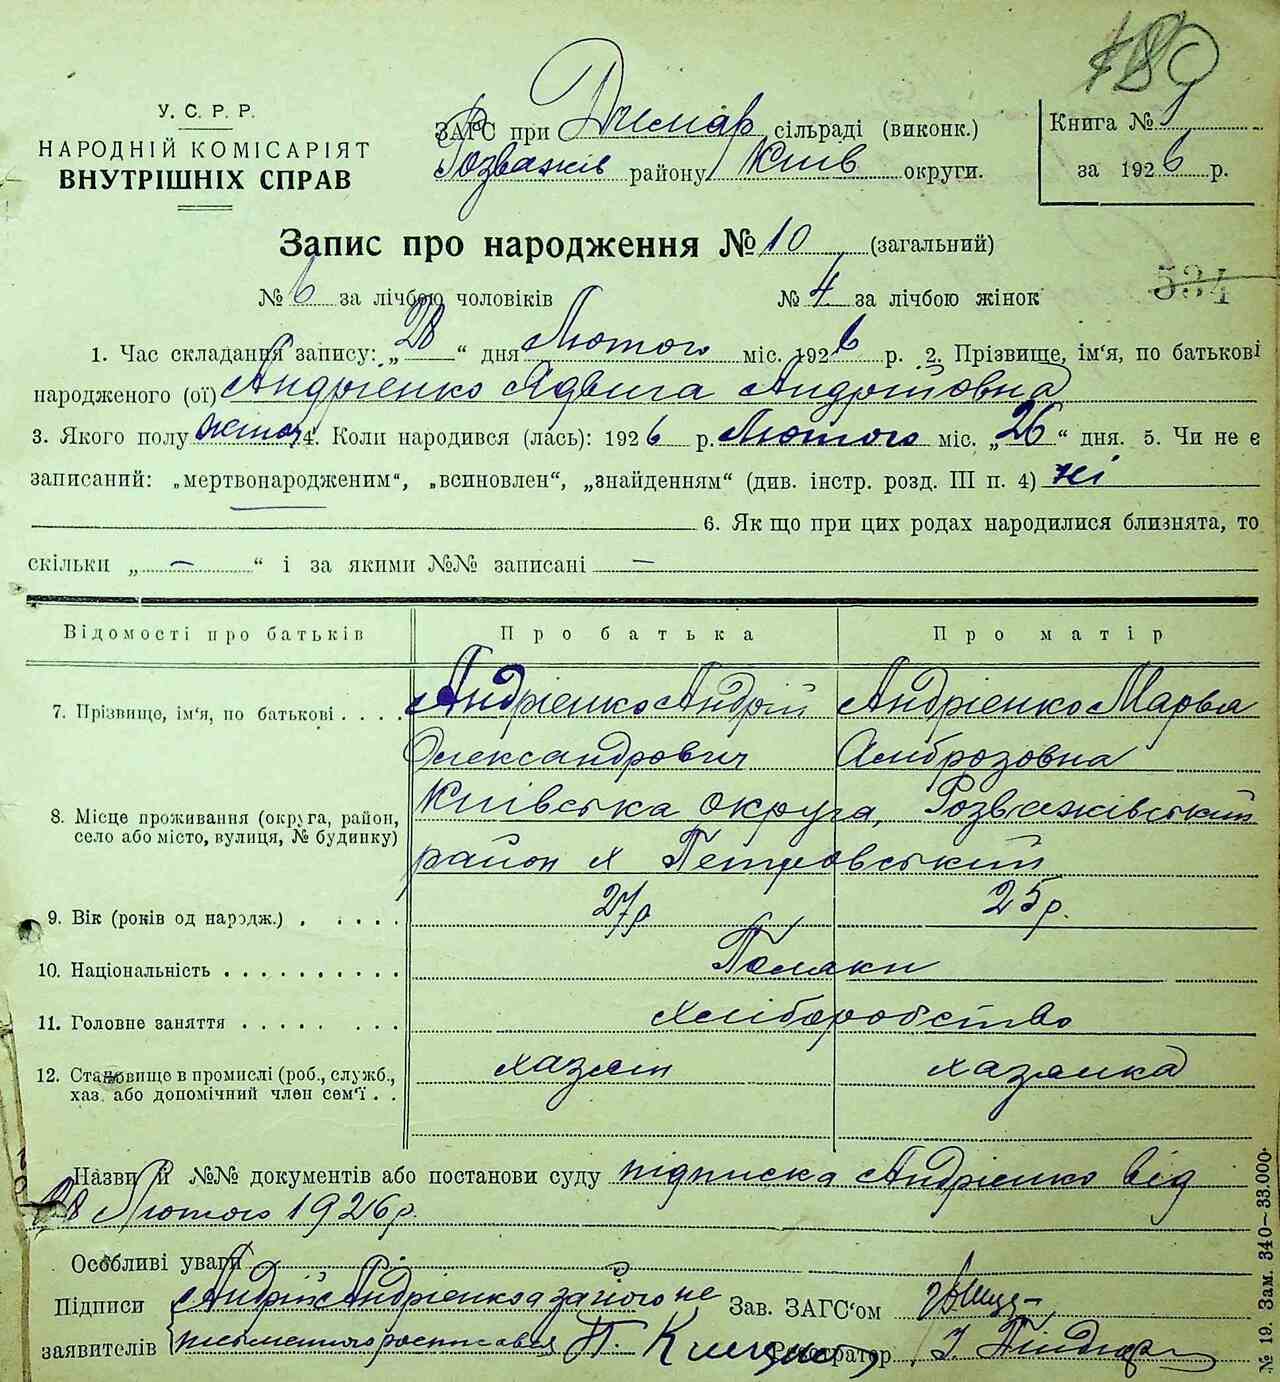 189
У. С. Р. Р.
НАРОДНІЙ КОМІСАРІЯТ
ВНУТРІШНІХ СПРАВ
ЗАГС при Димар сільраді (виконк.)
Розважів району Київ округи.
Книга №
за 1926 р.
Запис про народження № 10 (загальний)
№ 6 за лічбою чоловіків № 4 за лічбою жінок
534
1. Час складання запису: „28“ дня Лютого міс. 1926 р. 2. Прізвище, ім'я, по батькові
народженого (ої) Андрієнко Ядвига Андріївна
3. Якого полу жіноч 4. Коли народився (лась): 1926 р. Лютого міс. „26“ дня. 5. Чи не є
записаний: „мертвонародженим“, „всиновлен“, „знайденням“ (див. інстр. розд. III п. 4) ні
6. Як що при цих родах народилися близнята, то
скільки „ — “ і за якими №№ записані —
Відомості про батьків Про батька Про матір
7. Прізвище, ім'я, по батькові . . . . Андрієнко Андрій Андрієнко Марья
Олександрович Амброзовна
8. Місце проживання (округа, район, село або місто, вулиця, № будинку) Київська округа, Розважівський
район х Петровський
9. Вік (років од народж.) . . . . . 27р 25р.
10. Національність . . . . . . . . . . Поляки
11. Головне заняття . . . . . . . . . хліборобство
12. Становище в промислі (роб., служб., хазяін хазяика
хаз. або допомічний член сем'ї . .
Назви й №№ документів або постанови суду підписка Андрієнко від
28 Лютого 1926р.
Особливі уваги
Підписи Андрій Андрієнко а за його не Зав. ЗАГС'ом
заявителів письменного росписався П. Реєстратор
№ 19. Зам. 340—33.000.